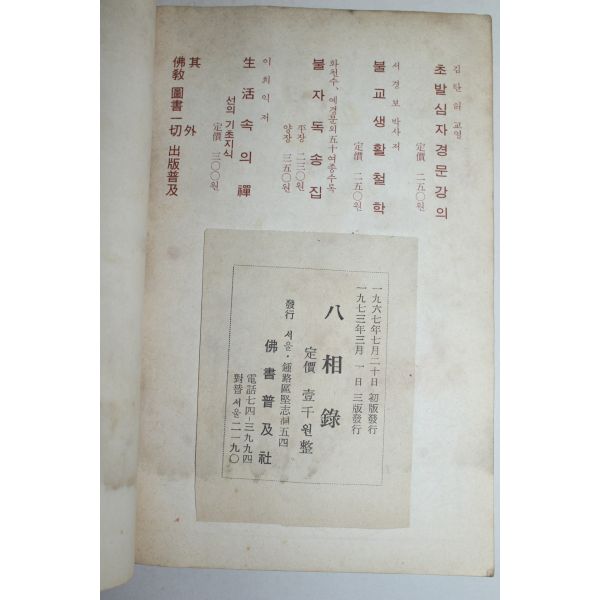 김탄허 교열
초발심자경문강의
定價 二五〇원
서경보 박사 저
불교생활철학
定價 二五〇원
화천수、예경문외五十여종수록
불자독송집
平장 二三〇원
양장 三五〇원
이희익 저
生活속의禪
선의 기초지식
定價 三〇〇원
其外
佛敎 圖書一切 出版普及
一九六七年七月二十日 初版發行
一九七三年三月 一日 三版發行
八相錄
定價 壹千원整
發行 서울·鍾路區堅志洞五四
佛書普及社
電話七四-三九九四
對替서울二一九〇